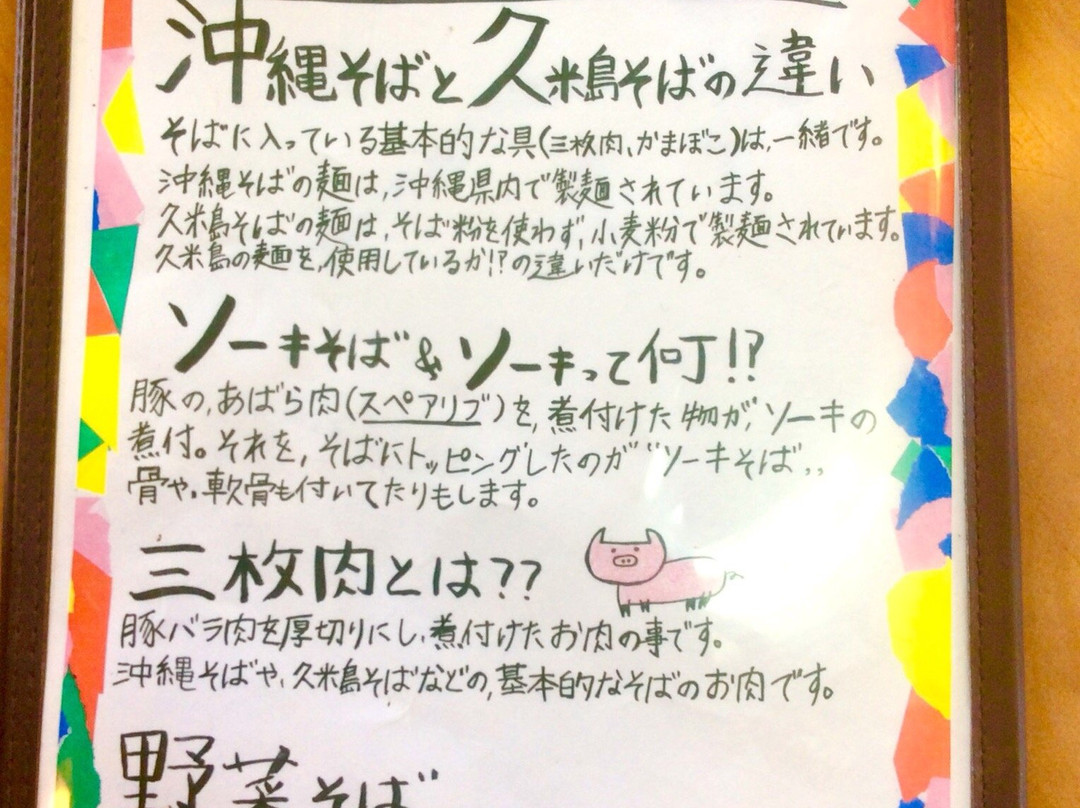 沖縄そばと久米島そばの違い
そばに入っている基本的な具(三枚肉、かまぼこ)は、一緒です。
沖縄そばの麺は、沖縄県内で製麺されています。
久米島そばの麺は、そば粉を使わず、小麦粉で製麺されています。
久米島の麺を、使用しているか!?の違いだけです。
ソーキそば&ソーキって何!?
豚の、あばら肉(スペアリブ)を、煮付けた物が、ソーキの
煮付。それを、そばにトッピングしたのが"ソーキそば"
骨や、軟骨も付いてたりもします。
三枚肉とは??
豚バラ肉を厚切りにし、煮付けたお肉の事です。
沖縄そばや、久米島そばなどの、基本的なそばのお肉です。
野菜そば